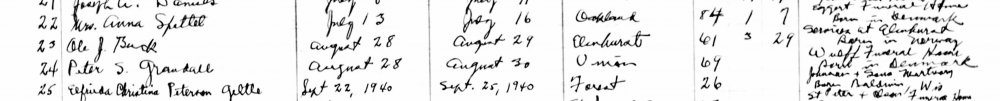 21 Joseph A. Daniels
Eggert Funeral Home
22 Mrs. Anna Spettel July 13 July 16 Oakland 84 1 7 Born in Denmark
Services at Elmhurst
23 Ole J. Buck August 28 August 29 Elmhurst 61 3 29 Born in Norway
Wulff Funeral Home
24 Peter S. Grandall August 28 August 30 Union 69 Born in Denmark
Johnson & Sons Mortuary
25 Christina Peterson Sept 22, 1940 Sept. 25, 1940 Forest 26 Born Baldwin, Wis
St Peter & Funeral Home